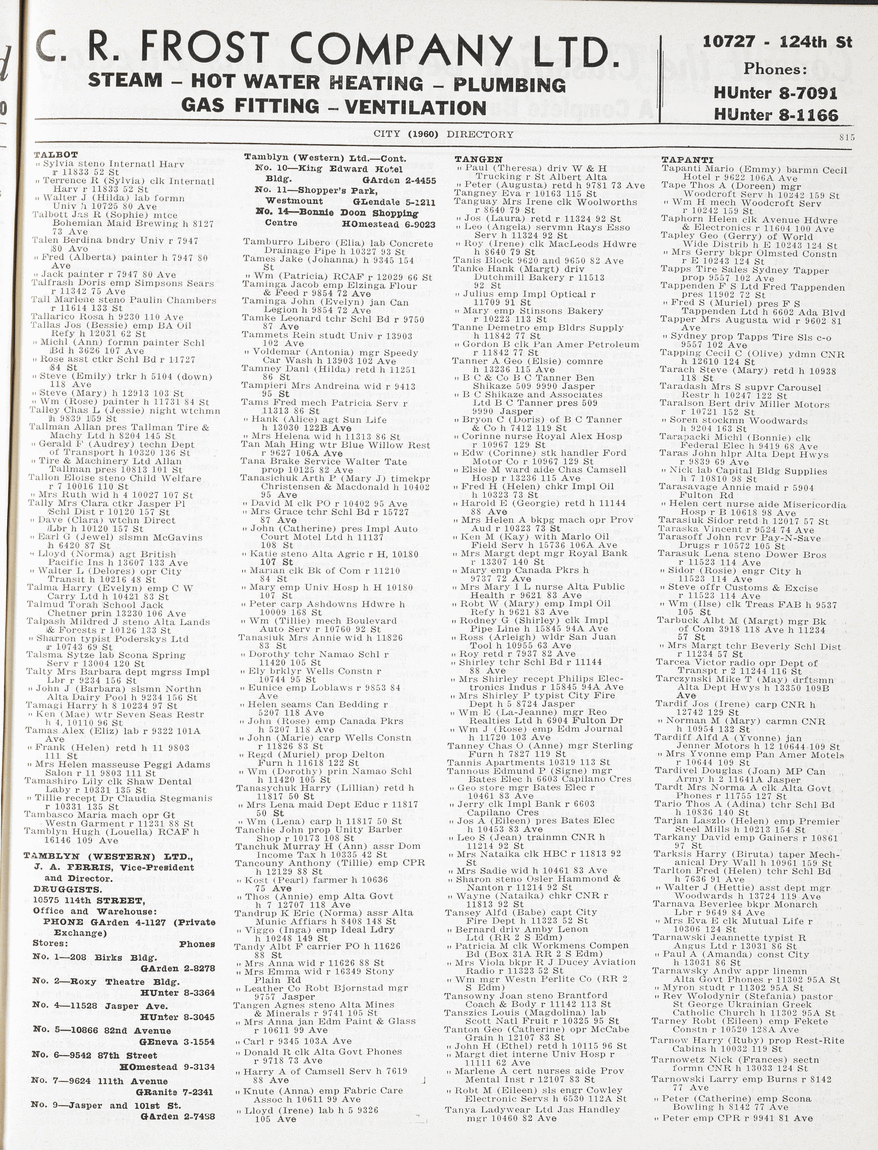 C. R. FROST COMPANY LTD.
STEAM – HOT WATER HEATING – PLUMBING
GAS FITTING – VENTILATION
10727 - 124th St
Phones:
HUnter 8-7091
HUnter 8-1166
CITY (1960) DIRECTORY
815
TALBOT
" Sylvia steno Internatl Harv
r 11833 52 St
" Terrence R (Sylvia) clk Internatl
Harv r 11833 52 St
" Walter J (Hilda) lab formn
Univ h 10725 80 Ave
Talbott Jas R (Sophie) mtce
Bohemian Maid Brewing h 8127
73 Ave
Talen Berdina bndry Univ r 7947
80 Ave
" Fred (Alberta) painter h 7947 80
Ave
" Jack painter r 7947 80 Ave
Talfrash Doris emp Simpsons Sears
r 11342 75 Ave
Tall Marlene steno Paulin Chambers
r 11614 133 St
Tallarico Rosa h 9230 110 Ave
Tallas Jos (Bessie) emp BA Oil
Refy h 12031 62 St
" Michl (Ann) formn painter Schl
Bd h 3626 107 Ave
" Rose asst ctkr Schl Bd r 11727
84 St
" Steve (Emily) trkr h 5104 (down)
118 Ave
" Steve (Mary) h 12913 103 St
" Wm (Rose) painter h 11731 84 St
Talley Chas L (Jessie) night wtchmn
h 9839 159 St
Tallman Allan pres Tallman Tire &
Machy Ltd h 8204 145 St
" Gerald F (Audrey) techn Dept
of Transport h 10320 136 St
" Tire & Machinery Ltd Allan
Tallman pres 10813 101 St
Tallon Eloise steno Child Welfare
r 7 10016 110 St
" Mrs Ruth wid h 4 10027 107 St
Tally Mrs Clara ctkr Jasper Pl
Schl Dist r 10120 157 St
" Dave (Clara) wtchn Direct
Lbr h 10120 157 St
" Earl G (Jewel) slsmn McGavins
h 6420 87 St
" Lloyd (Norma) agt British
Pacific Ins h 13607 133 Ave
" Walter L (Delores) opr City
Transit h 10216 48 St
Talma Harry (Evelyn) emp C W
Carry Ltd h 10421 83 St
Talmud Torah School Jack
Chetner prin 13230 106 Ave
Talpash Mildred J steno Alta Lands
& Forests r 10126 133 St
" Sharron typist Poderskys Ltd
r 10743 69 St
Talsma Sytze lab Scona Spring
Serv r 13004 120 St
Talty Mrs Barbara dept mgrss Impl
Lbr r 9234 156 St
" John J (Barbara) slsmn Northn
Alta Dairy Pool h 9234 156 St
Tamagi Harry h 8 10234 97 St
" Ken (Mae) wtr Seven Seas Restr
h 4, 10110 96 St
Tamas Alex (Eliz) lab r 9322 101A
Ave
" Frank (Helen) retd h 11 9803
111 St
" Mrs Helen masseuse Peggi Adams
Salon r 11 9803 111 St
Tamashiro Lily clk Shaw Dental
Laby r 10331 135 St
" Tillie recept Dr Claudia Stegmanis
r 10331 135 St
Tambasco Maria mach opr Gt
Westn Garment r 11231 88 St
Tamblyn Hugh (Louella) RCAF h
16146 109 Ave
TAMBLYN (WESTERN) LTD.,
J. A. FERRIS, Vice-President
and Director.
DRUGGISTS.
10575 114th STREET,
Office and Warehouse:
PHONE GArden 4-1127 (Private
Exchange)
Stores: Phones
No. 1—208 Birks Bldg.
GArden 2-8278
No. 2—Roxy Theatre Bldg.
HUnter 8-3364
No. 4—11528 Jasper Ave.
HUnter 8-3045
No. 5—10866 82nd Avenue
GEneva 3-1554
No. 6—9542 87th Street
HOmestead 9-3134
No. 7—9624 111th Avenue
GRanite 7-2341
No. 9—Jasper and 101st St.
GArden 2-7458
Tamblyn (Western) Ltd.—Cont.
No. 10—King Edward Hotel
Bldg. GArden 2-4455
No. 11—Shopper's Park,
Westmount GLendale 5-1211
No. 14—Bonnie Doon Shopping
Centre HOmestead 6-9023
Tamburro Libero (Elia) lab Concrete
Drainage Pipe h 10327 93 St
Tames Jake (Johanna) h 9345 154
St
" Wm (Patricia) RCAF r 12029 66 St
Taminga Jacob emp Elzinga Flour
& Feed r 9854 72 Ave
Taminga John (Evelyn) jan Can
Legion h 9854 72 Ave
Tamke Leonard tchr Schl Bd r 9750
87 Ave
Tammets Rein studt Univ r 13903
102 Ave
" Voldemar (Antonia) mgr Speedy
Car Wash h 13903 102 Ave
Tamney Danl (Hilda) retd h 11251
86 St
Tampieri Mrs Andreina wid r 9413
95 St
Tams Fred mech Patricia Serv r
11313 86 St
" Hank (Alice) agt Sun Life
h 13030 122B Ave
" Mrs Helena wid h 11313 86 St
Tan Mah Hing wtr Blue Willow Rest
r 9627 106A Ave
Tana Brake Service Walter Tate
prop 10125 82 Ave
Tanasichuk Arth P (Mary J) timekpr
Christensen & Macdonald h 10402
95 Ave
" David M clk PO r 10402 95 Ave
" Mrs Grace tchr Schl Bd r 15727
87 Ave
" John (Catherine) pres Impl Auto
Court Motel Ltd h 11137
108 St
" Katie steno Alta Agric r H, 10180
107 St
" Marian clk Bk of Com r 11210
84 St
" Mary emp Univ Hosp h H 10180
107 St
" Peter carp Ashdowns Hdwre h
10009 168 St
" Wm (Tillie) mech Boulevard
Auto Serv r 10760 92 St
Tanasiuk Mrs Annie wid h 11826
83 St
" Dorothy tchr Namao Schl r
11420 105 St
" Ely brklyr Wells Constn r
10744 95 St
" Eunice emp Loblaws r 9853 84
Ave
" Helen seams Can Bedding r
5207 118 Ave
" John (Rose) emp Canada Pkrs
h 5207 118 Ave
" John (Marie) carp Wells Constn
r 11826 83 St
" Regd (Muriel) prop Delton
Furn h 11618 122 St
" Wm (Dorothy) prin Namao Schl
h 11420 105 St
Tanasychuk Harry (Lillian) retd h
11817 50 St
" Mrs Lena maid Dept Educ r 11817
50 St
" Wm (Lena) carp h 11817 50 St
Tanchie John prop Unity Barber
Shop r 10173 108 St
Tanchuk Murray H (Ann) assr Dom
Income Tax h 10335 42 St
Tancouny Anthony (Tillie) emp CPR
h 12129 88 St
" Kost (Pearl) farmer h 10636
75 Ave
" Thos (Annie) emp Alta Govt
h 7 12707 118 Ave
Tandrup K Eric (Norma) assr Alta
Munic Affiars h 8408 148 St
" Viggo (Inga) emp Ideal Ldry
h 10248 149 St
Tandy Albt F carrier PO h 11626
88 St
" Mrs Anna wid r 11626 88 St
" Mrs Emma wid r 16349 Stony
Plain Rd
" Leather Co Robt Bjornstad mgr
9757 Jasper
Tangen Agnes steno Alta Mines
& Minerals r 9741 105 St
" Mrs Anna jan Edm Paint & Glass
r 10611 99 Ave
" Carl r 9345 103A Ave
" Donald R clk Alta Govt Phones
r 9718 73 Ave
" Harry A of Camsell Serv h 7619
88 Ave
" Knute (Anna) emp Fabric Care
Assoc h 10611 99 Ave
" Lloyd (Irene) lab h 5 9326
105 Ave
TANGEN
" Paul (Theresa) driv W & H
Trucking r St Albert Alta
" Peter (Augusta) retd h 9781 73 Ave
Tangney Eva r 10163 115 St
Tanguay Mrs Irene clk Woolworths
r 8640 79 St
" Jos (Laura) retd r 11324 92 St
" Leo (Angela) servmn Rays Esso
Serv h 11324 92 St
" Roy (Irene) clk MacLeods Hdwre
h 8640 79 St
Tanis Block 9620 and 9650 82 Ave
Tanke Hank (Margt) driv
Dutchmill Bakery r 11513
92 St
" Julius emp Impl Optical r
11709 91 St
" Mary emp Stinsons Bakery
r 10223 113 St
Tanne Demetro emp Bldrs Supply
h 11842 77 St
" Gordon B clk Pan Amer Petroleum
r 11842 77 St
Tanner A Geo (Elsie) comnre
h 13236 115 Ave
" B C & Co B C Tanner Ben
Shikaze 509 9990 Jasper
" B C Shikaze and Associates
Ltd B C Tanner pres 509
9990 Jasper
" Bryon C (Doris) of B C Tanner
& Co h 7412 119 St
" Corinne nurse Royal Alex Hosp
r 10967 129 St
" Edw (Corinne) stk handler Ford
Motor Co r 10967 129 St
" Elsie M ward aide Chas Camsell
Hosp r 13236 115 Ave
" Fred H (Helen) chkr Impl Oil
h 10323 73 St
" Harold E (Georgie) retd h 11144
88 Ave
" Mrs Helen A bkpg mach opr Prov
Aud r 10323 73 St
" Ken M (Kay) with Marlo Oil
Field Serv h 15736 106A Ave
" Mrs Margt dept mgr Royal Bank
r 13307 140 St
" Mary emp Canada Pkrs h
9737 72 Ave
" Mrs Mary I L nurse Alta Public
Health r 9621 83 Ave
" Robt W (Mary) emp Impl Oil
Refy h 9621 83 Ave
" Rodney G (Shirley) clk Impl
Pipe Line h 15845 94A Ave
" Ross (Arleigh) wldr San Juan
Tool h 10955 63 Ave
" Roy retd r 7937 82 Ave
" Shirley tchr Schl Bd r 11144
88 Ave
" Mrs Shirley recept Philips Elec-
tronics Indus r 15845 94A Ave
" Mrs Shirley P typist City Fire
Dept h 5 8724 Jasper
" Wm E (La-Jeanne) mgr Reo
Realties Ltd h 6904 Fulton Dr
" Wm J (Rose) emp Edm Journal
h 11720 103 Ave
Tanney Chas O (Anne) mgr Sterling
Furn h 7827 119 St
Tannis Apartments 10319 113 St
Tannous Edmund P (Signe) mgr
Bates Elec h 6603 Capilano Cres
" Geo store mgr Bates Elec r
10461 83 Ave
" Jerry clk Impl Bank r 6603
Capilano Cres
" Jos A (Eileen) pres Bates Elec
h 10453 83 Ave
" Leo S (Jean) trainmn CNR h
11214 92 St
" Mrs Nataika clk HBC r 11813 92
St
" Mrs Sadie wid h 10461 83 Ave
" Sharon steno Osler Hammond &
Nanton r 11214 92 St
" Wayne (Nataika) chkr CNR r
11813 92 St
Tansey Alfd (Babe) capt City
Fire Dept h 11323 52 St
" Bernard driv Amby Lenon
Ltd (RR 2 S Edm)
" Patricia M clk Workmens Compen
Bd (Box 31A RR 2 S Edm)
" Mrs Viola bkpr R J Ducey Aviation
Radio r 11323 52 St
" Wm mgr Westn Perlite Co (RR 2
S Edm)
Tansowny Joan steno Brantford
Coach & Body r 11142 113 St
Tanszics Louis (Magdolina) lab
Scott Natl Fruit r 10325 95 St
Tanton Geo (Catherine) opr McCabe
Grain h 12107 83 St
" John H (Ethel) retd h 10115 96 St
" Margt diet interne Univ Hosp r
11111 62 Ave
" Marlene A cert nurses aide Prov
Mental Inst r 12107 83 St
" Robt M (Eileen) sls engr Cowley
Electronic Servs h 6530 112A St
Tanya Ladywear Ltd Jas Handley
mgr 10460 82 Ave
TAPANTI
Tapanti Mario (Emmy) barmn Cecil
Hotel r 9622 106A Ave
Tape Thos A (Doreen) mgr
Woodcroft Serv h 10242 159 St
" Wm H mech Woodcroft Serv
r 10242 159 St
Taphorn Helen clk Avenue Hdwre
& Electronics r 11604 100 Ave
Tapley Geo (Gerry) of World
Wide Distrib h E 10243 124 St
" Mrs Gerry bkpr Olmsted Constn
r E 10243 124 St
Tapps Tire Sales Sydney Tapper
prop 9557 102 Ave
Tappenden F S Ltd Fred Tappenden
pres 11902 72 St
" Fred S (Muriel) pres F S
Tappenden Ltd h 6602 Ada Blvd
Tapper Mrs Augusta wid r 9602 81
Ave
" Sydney prop Tapps Tire Sls c-o
9557 102 Ave
Tapping Cecil C (Olive) ydmn CNR
h 12610 124 St
Tarach Steve (Mary) retd h 10938
118 St
Taradash Mrs S supvr Carousel
Restr h 10247 122 St
Taralson Bert driv Miller Motors
r 10721 152 St
" Soren stockmn Woodwards
h 9204 163 St
Tarapacki Michl (Bonnie) clk
Federal Elec h 9419 68 Ave
Taras John hlpr Alta Dept Hwys
r 9839 69 Ave
" Nick lab Capital Bldg Supplies
h 7 10810 98 St
Tarasavage Annie maid r 5904
Fulton Rd
" Helen cert nurse aide Misericordia
Hosp r B 10618 98 Ave
Tarasiuk Sidor retd h 12017 57 St
Taraska Vincent r 9524 74 Ave
Tarasoff John rcvr Pay-N-Save
Drugs r 10572 105 St
Tarasuk Lena steno Dower Bros
r 11523 114 Ave
" Sidor (Rosie) engr City h
11523 114 Ave
" Steve offr Customs & Excise
r 11523 114 Ave
" Wm (Ilse) clk Treas FAB h 9537
105 St
Tarbuck Albt M (Margt) mgr Bk
of Com 3918 118 Ave h 11234
57 St
" Mrs Margt tchr Beverly Schl Dist
r 11234 57 St
Tarcea Victor radio opr Dept of
Transpt r 2 11244 116 St
Tarczynski Mike T (May) drftsmn
Alta Dept Hwys h 13350 109B
Ave
Tardif Jos (Irene) carp CNR h
12742 129 St
" Norman M (Mary) carmn CNR
h 10954 132 St
Tardiff Alfd A (Yvonne) jan
Jenner Motors h 12 10644 109 St
" Mrs Yvonne emp Pan Amer Motels
r 10644 109 St
Tardivel Douglas (Joan) MP Can
Army h 2 11641A Jasper
Tardt Mrs Norma A clk Alta Govt
Phones r 11755 127 St
Tario Thos A (Adina) tchr Schl Bd
h 10836 140 St
Tarjan Laszlo (Helen) emp Premier
Steel Mills h 10213 154 St
Tarkany David emp Gainers r 10861
97 St
Tarksis Harry (Biruta) taper Mech-
anical Dry Wall h 10961 159 St
Tarlton Fred (Helen) tchr Schl Bd
h 7636 91 Ave
" Walter J (Hettie) asst dept mgr
Woodwards h 13724 119 Ave
Tarnava Beverlee bkpr Monarch
Lbr r 9649 84 Ave
" Mrs Eva E clk Mutual Life r
10306 124 St
Tarnawski Jeannette typist R
Angus Ltd r 13031 86 St
" Paul A (Amanda) const City
h 13031 86 St
Tarnawsky Andw appr linemn
Alta Govt Phones r 11302 95A St
" Myron studt r 11302 95A St
" Rev Wolodynir (Stefania) pastor
St George Ukrainian Greek
Catholic Church h 11302 95A St
Tarney Robt (Eileen) emp Fekete
Constn r 10520 128A Ave
Tarnow Harry (Ruby) prop Rest-Rite
Cabins h 10032 119 St
Tarnowetz Nick (Frances) sectn
formn CNR h 13033 124 St
Tarnowski Larry emp Burns r 8142
77 Ave
" Peter (Catherine) emp Scona
Bowling h 8142 77 Ave
" Peter emp CPR r 9941 81 Ave